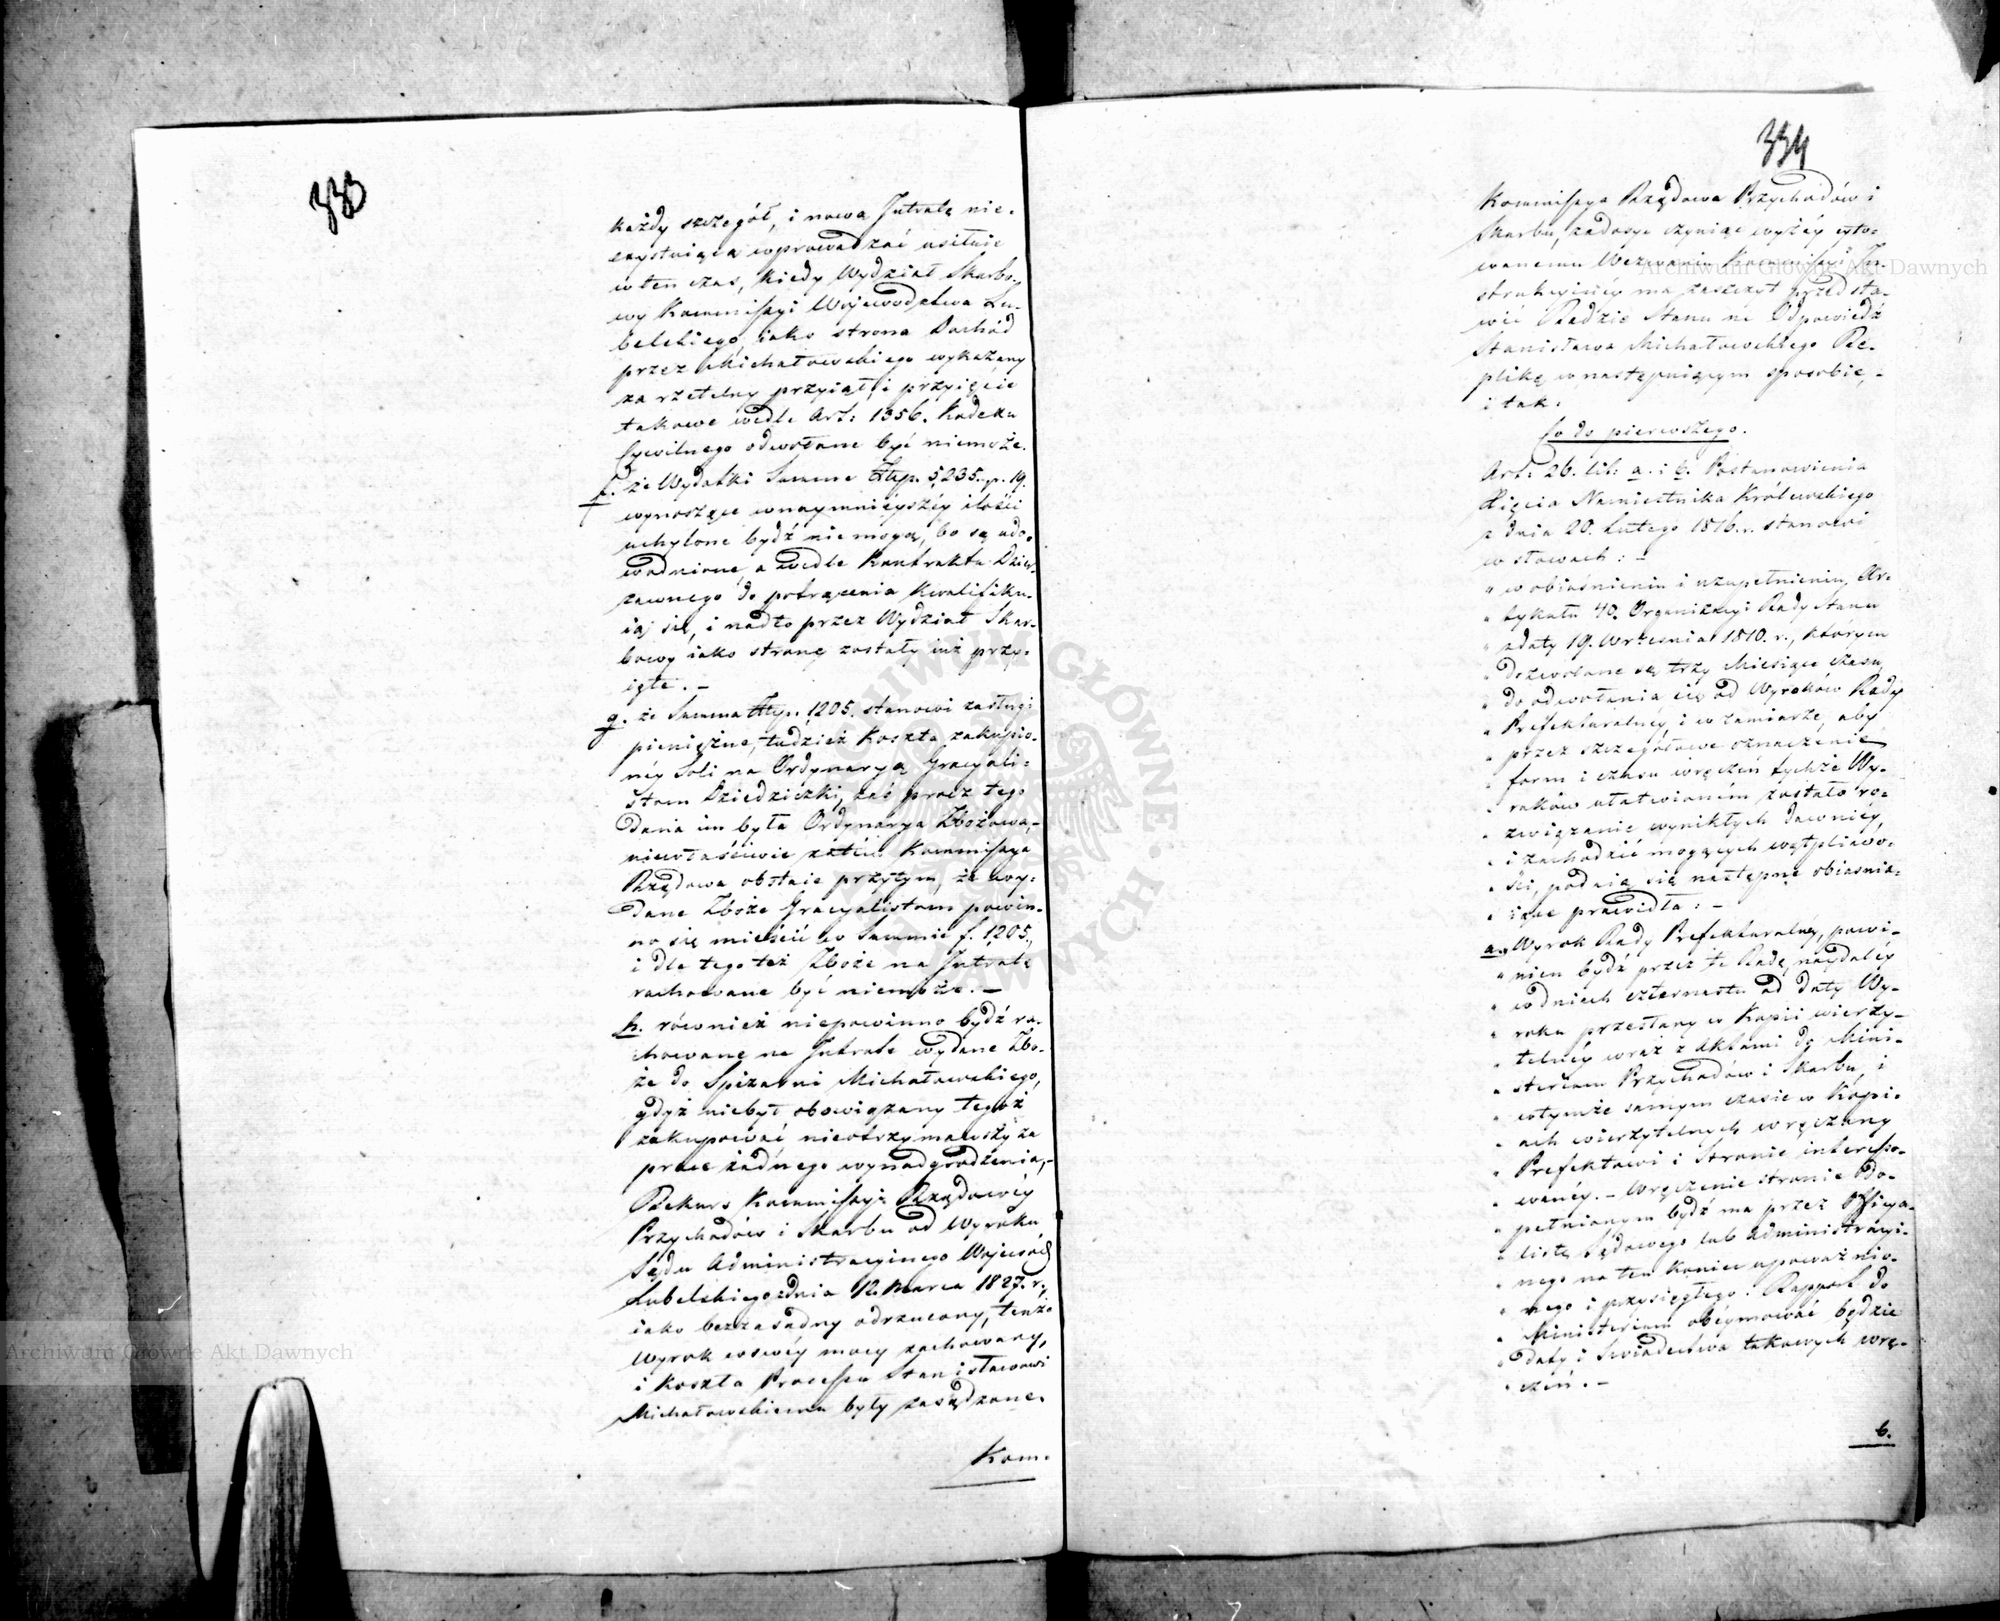 333
każdy szczegół, i nową Intratę nie-
exystuiącą wprowadzać usiłuie
w ten czas, kiedy Wydział Skarbo-
wy Kommissyi Woiewództwa Lu-
belskiego, iako strona Dochód
przez Michałowskiego wykazany
za rzetelny przyiął, i przyięcie
takowe wedle Art: 1356. Kodexu
Cywilnego odwołane być niemoże.
f. że Wydatki Summę Złtp. 5,235. p. 19.
wynoszące w naymnieyszéy ilości
uchylone bydź niemogą, bo są udo-
wodnione, a wedle Kontraktu Dzier-
żawnego do potrącenia kwalifiku-
ią się, i nadto przez Wydział Skar-
bowy iako stronę zostały iuż przy-
ięte. –
g. że Summa Złtp. 1205. stanowi zasługi
pieniężne, tudzież koszta zakupio-
néy Soli na Ordynaryą Gracyali-
stom Dziedziczki, zaś prócz tego
dana im była Ordynarya Zbożowa,–
niewłaściwie zatém Kommissya
Rządowa obstaie przytym, że wy-
dane Zboże Gracyalistom powin-
no się mieścić w Summie f. 1205.,
i dla tego też Zboże na Intratę
rachowane być niemoże. –
h. również niepowinno bydź ra-
chowane na Intratę wydane Zbo-
że do Spiżarni Michałowskiego,
gdyż niebył obowiązany tegoż
zakupować nieotrzymawszy za
pracę żadnego wynadgrodzenia,–
Rekurs Kommissyi Rządowéy
Przychodów i Skarbu od Wyroku
Sądu Administracyinego Wojewód:
Lubelskiego z dnia 12. Marca 1827. r.,
iako bezzasadny odrzucony, tenże
Wyrok w swéy mocy zachowany,
i koszta Processu Stanisławowi
Michałowskiemu były zasądzone.
Kom-
334
Kommissya Rządowa Przychodów i
Skarbu, zadosyć czyniąc wyżéy cyto-
wanemu Wezwaniu Kommissyi In-
strukcyinéy ma zaszczyt przedsta-
wić Radzie Stanu na Odpowiedź
Stanisława Michałowskiego Re-
plikę w następuiącym sposobie, –
i tak:
Co do pierwszego.
Art: 26. lit: a. i b. Postanowienia
Xięcia Namiestnika Królewskiego
z dnia 20. Lutego 1816. r. stanowi
w słowach: –
" w obiaśnieniu i uzupełnieniu, Ar-
" tykułu 40. Organizacyi Rady Stanu
" z daty 19. Września 1810. r., którym
" dozwolone są trzy Miesiące czasu,
" do odwołania się od Wyroków Rady
" Prefekturalnéy, i w zamiarze, aby
" przez szczegółowe oznaczenie
" form i czasu wręczeń tychże Wy-
" roków ułatwioném zostało ro-
" związanie wynikłych dawniéy,
" i zachodzić mogących wątpliwo-
" ści, podaią się następne obiaśnia-
" iące prawidła: –
a. Wyrok Rady Prefekturalnéy, powi-
" nien bydź przez tę Radę naydaléy
" w dniach czternastu od daty Wy-
" roku przesłany w Kopii wierzy-
" telnéy wraz z Aktami do Mini-
" sterium Przychodów i Skarbu, i
" w tymże samym czasie w Kopi-
" ach wierzytelnych wręczany
" Prefektowi i Stronie interesso-
" wanéy. – Wręczenie stronie do-
" pełnionym bydź ma przez Officya-
" listę Sądowego lub Administracyi-
" nego na ten koniec upoważnio-
" nego i przysięgłego: Rapport do
" Ministerium obéymować będzie
" daty i Świadectwa takowych wrę-
" czeń. –
b.
Archiwum Główne Akt Dawnych
Archiwum Główne Akt Dawnych
ARCHIWUM GŁÓWNE AKT DAWNYCH